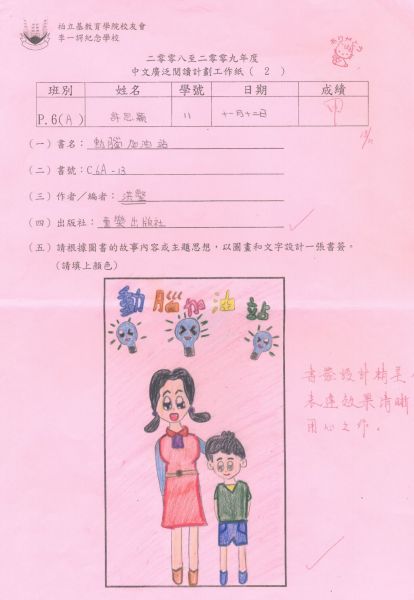 柏立基教育學院校友會
李一諤紀念學校
二零零八至二零零九年度
中文廣泛閱讀計劃工作紙（2）
班別 姓名 學號 日期 成績
P.6(A) 許思穎 11 十一月十二日 甲
（一）書名：動腦加油站
（二）書號：C6A-13
（三）作者／編者：洪馨
（四）出版社：童樂出版社
（五）請根據圖書的故事內容或主題思想，以圖畫和文字設計一張書簽。
（請填上顏色）
動腦加油站
書簽設計精美
表達效果清晰
用心之作。